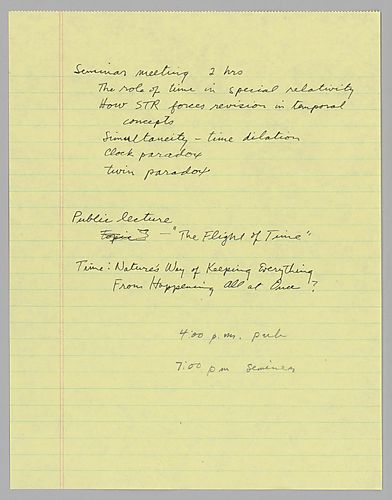 Seminar meeting 2 hrs
The role of time in special relativity
How STR forces revision in temporal
concepts
Simultaneity - time dilation
Clock paradox
twin paradox
Public lecture
Topic? - "The Flight of Time"
Time: Nature's Way of Keeping Everything
From Happening All at Once?
4:00 p.m. pub
7:00 pm seminar